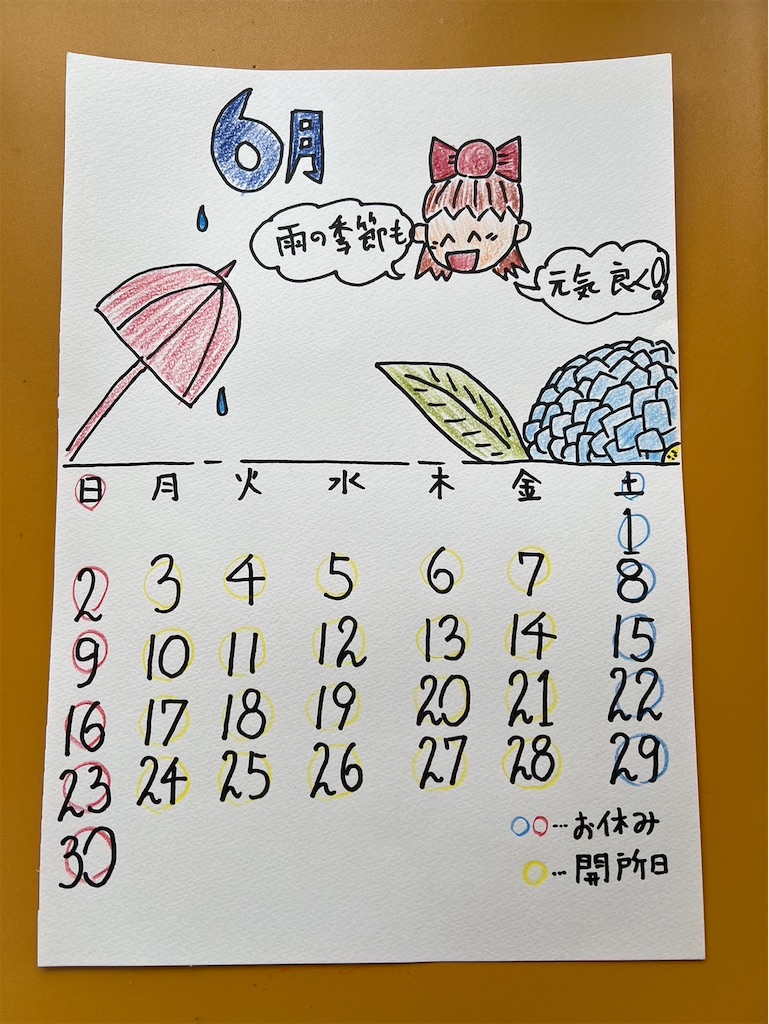 6月
雨の季節も
元気良く!
日 月 火 水 木 金 土
1
2 3 4 5 6 7 8
9 10 11 12 13 14 15
16 17 18 19 20 21 22
23 24 25 26 27 28 29
30
…お休み
…開所日